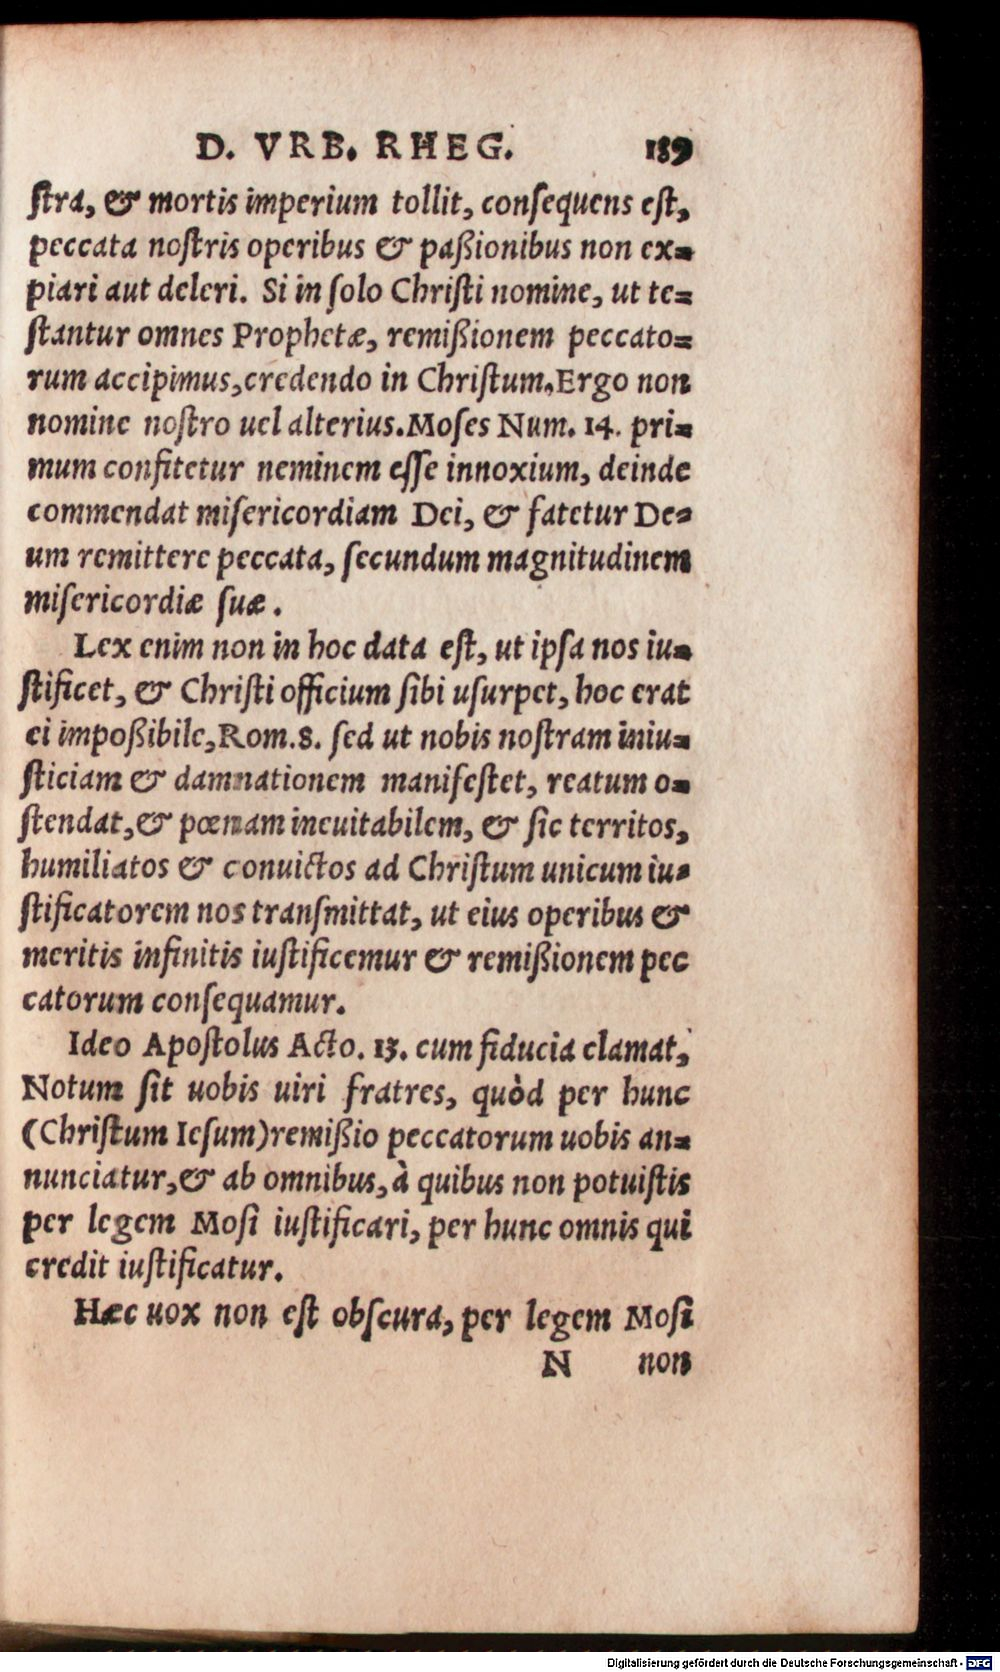 D. VRB. RHEG. 189
ſtra, & mortis imperium tollit, conſequens eſt,
peccata noſtris operibus & paßionibus non ex=
piari aut deleri. Si in ſolo Chriſti nomine, ut te=
ſtantur omnes Prophetæ, remißionem peccato=
rum accipimus, credendo in Chriſtum, Ergo non
nomine noſtro uel alterius. Moſes Num. 14. pri=
mum confitetur neminem eſſe innoxium, deinde
commendat miſericordiam Dei, & fatetur De=
um remittere peccata, ſecundum magnitudinem
miſericordiæ ſuæ.
Lex enim non in hoc data eſt, ut ipſa nos iu=
ſtificet, & Chriſti officium ſibi uſurpet, hoc erat
ei impoßibile, Rom. 8. ſed ut nobis noſtram iniu=
ſticiam & damnationem manifeſtet, reatum o=
ſtendat, & pœnam ineuitabilem, & ſic territos,
humiliatos & conuictos ad Chriſtum unicum iu=
ſtificatorem nos tranſmittat, ut eius operibus &
meritis infinitis iuſtificemur & remißionem pec
catorum conſequamur.
Ideo Apoſtolus Acto. 13. cum fiducia clamat,
Notum ſit uobis uiri fratres, quòd per hunc
(Chriſtum Ieſum) remißio peccatorum uobis an=
nunciatur, & ab omnibus, à quibus non potuiſtis
per legem Moſi iuſtificari, per hunc omnis qui
credit iuſtificatur.
Hæc uox non eſt obſcura, per legem Moſi
N non
Digitalisierung gefördert durch die Deutsche Forschungsgemeinschaft - DFG